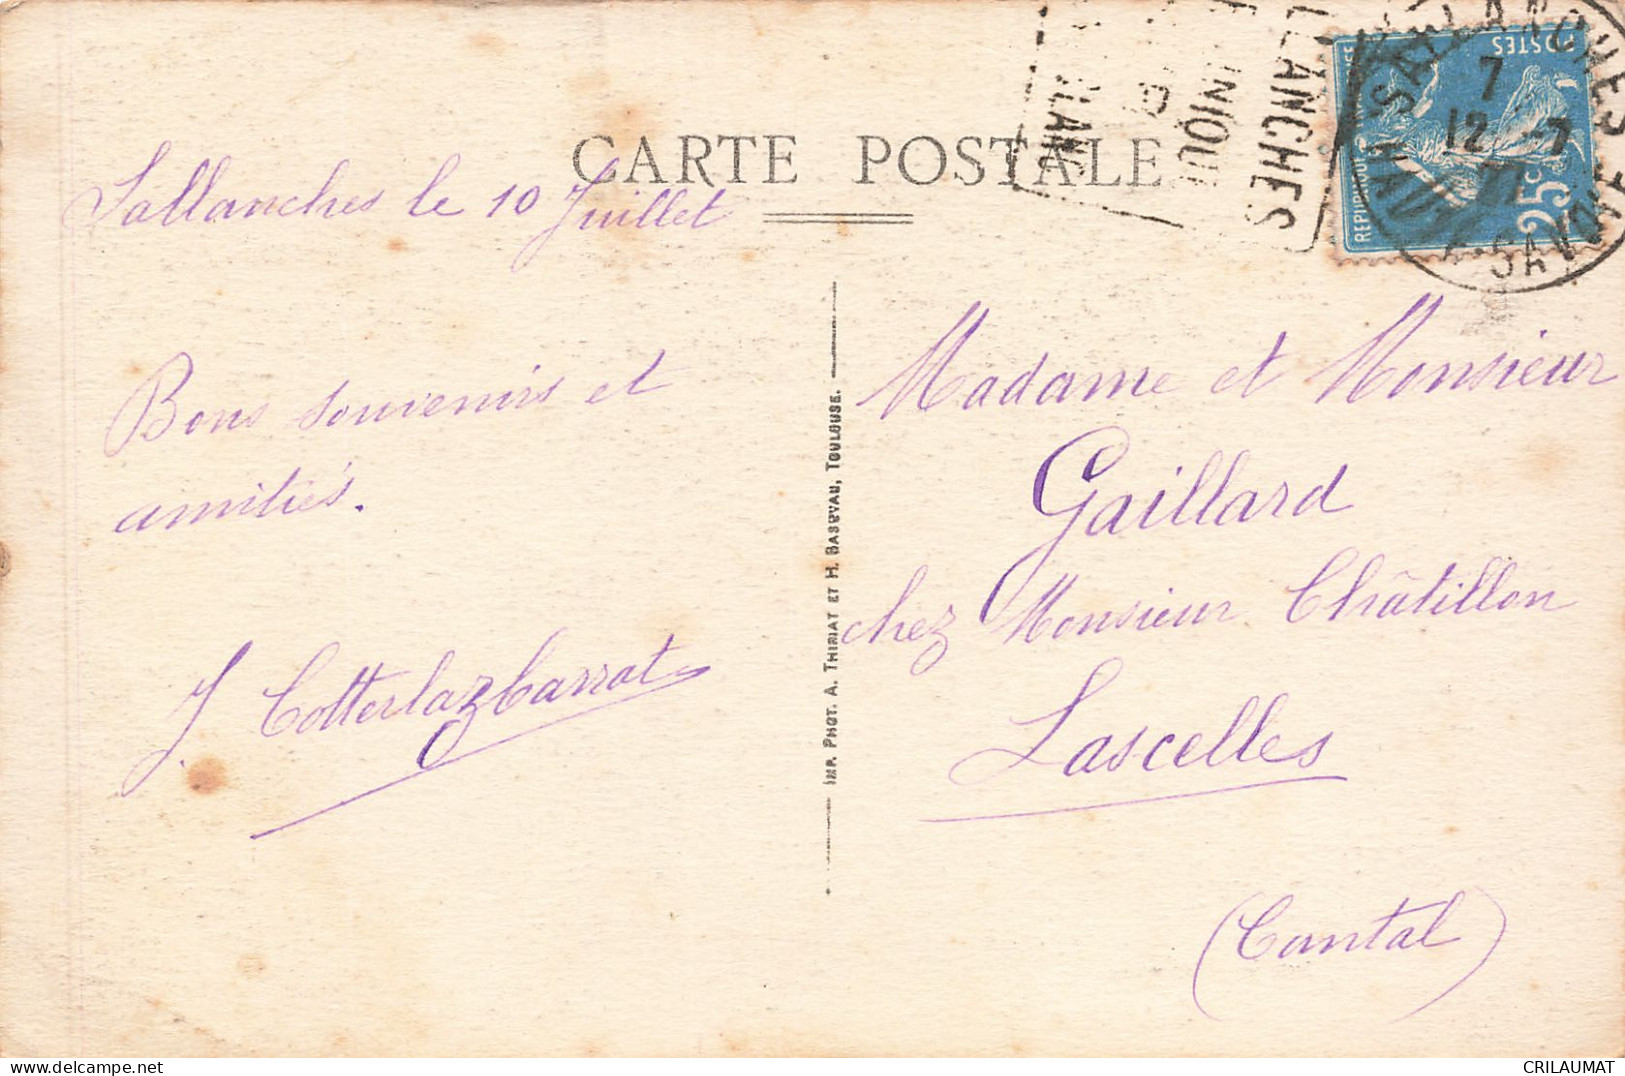 CARTE POSTALE
Sallanches le 10 Juillet
Bons souvenirs et
amitiés.
J. Cotterlazbarrat
IMP. PHOT. A. THIRIAT ET H. BASRVAU, TOULOUSE.
LLANCHES
UNIQUE
BLANC
POSTES
25c
SALLANCHES
7
12 -7
27
Hte SAVOIE
Madame et Monsieur
Gaillard
chez Monsieur Châtillon
Lascelles
(Cantal)
CRILAUMAT